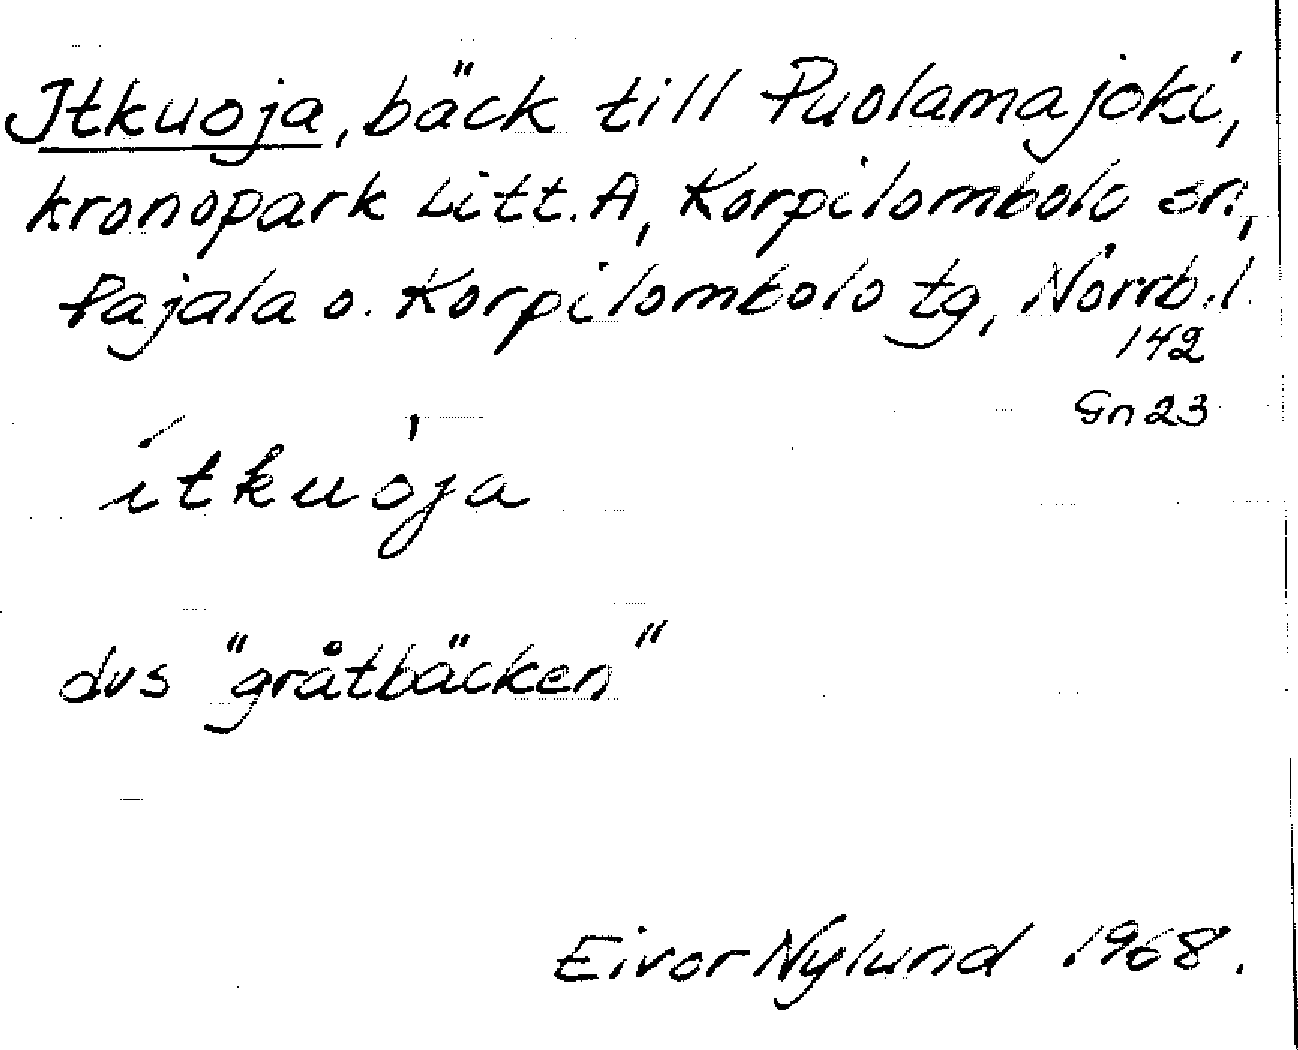 Itkuoja, bäck till Puolamajoki,
kronopark Litt. A, Korpilombolo sn,
Pajala o. Korpilombolo tg, Norrb. l.
142
Gn 23
ítkuo̍ja
dvs "gråtbäcken"
Eivor Nylund 1968.